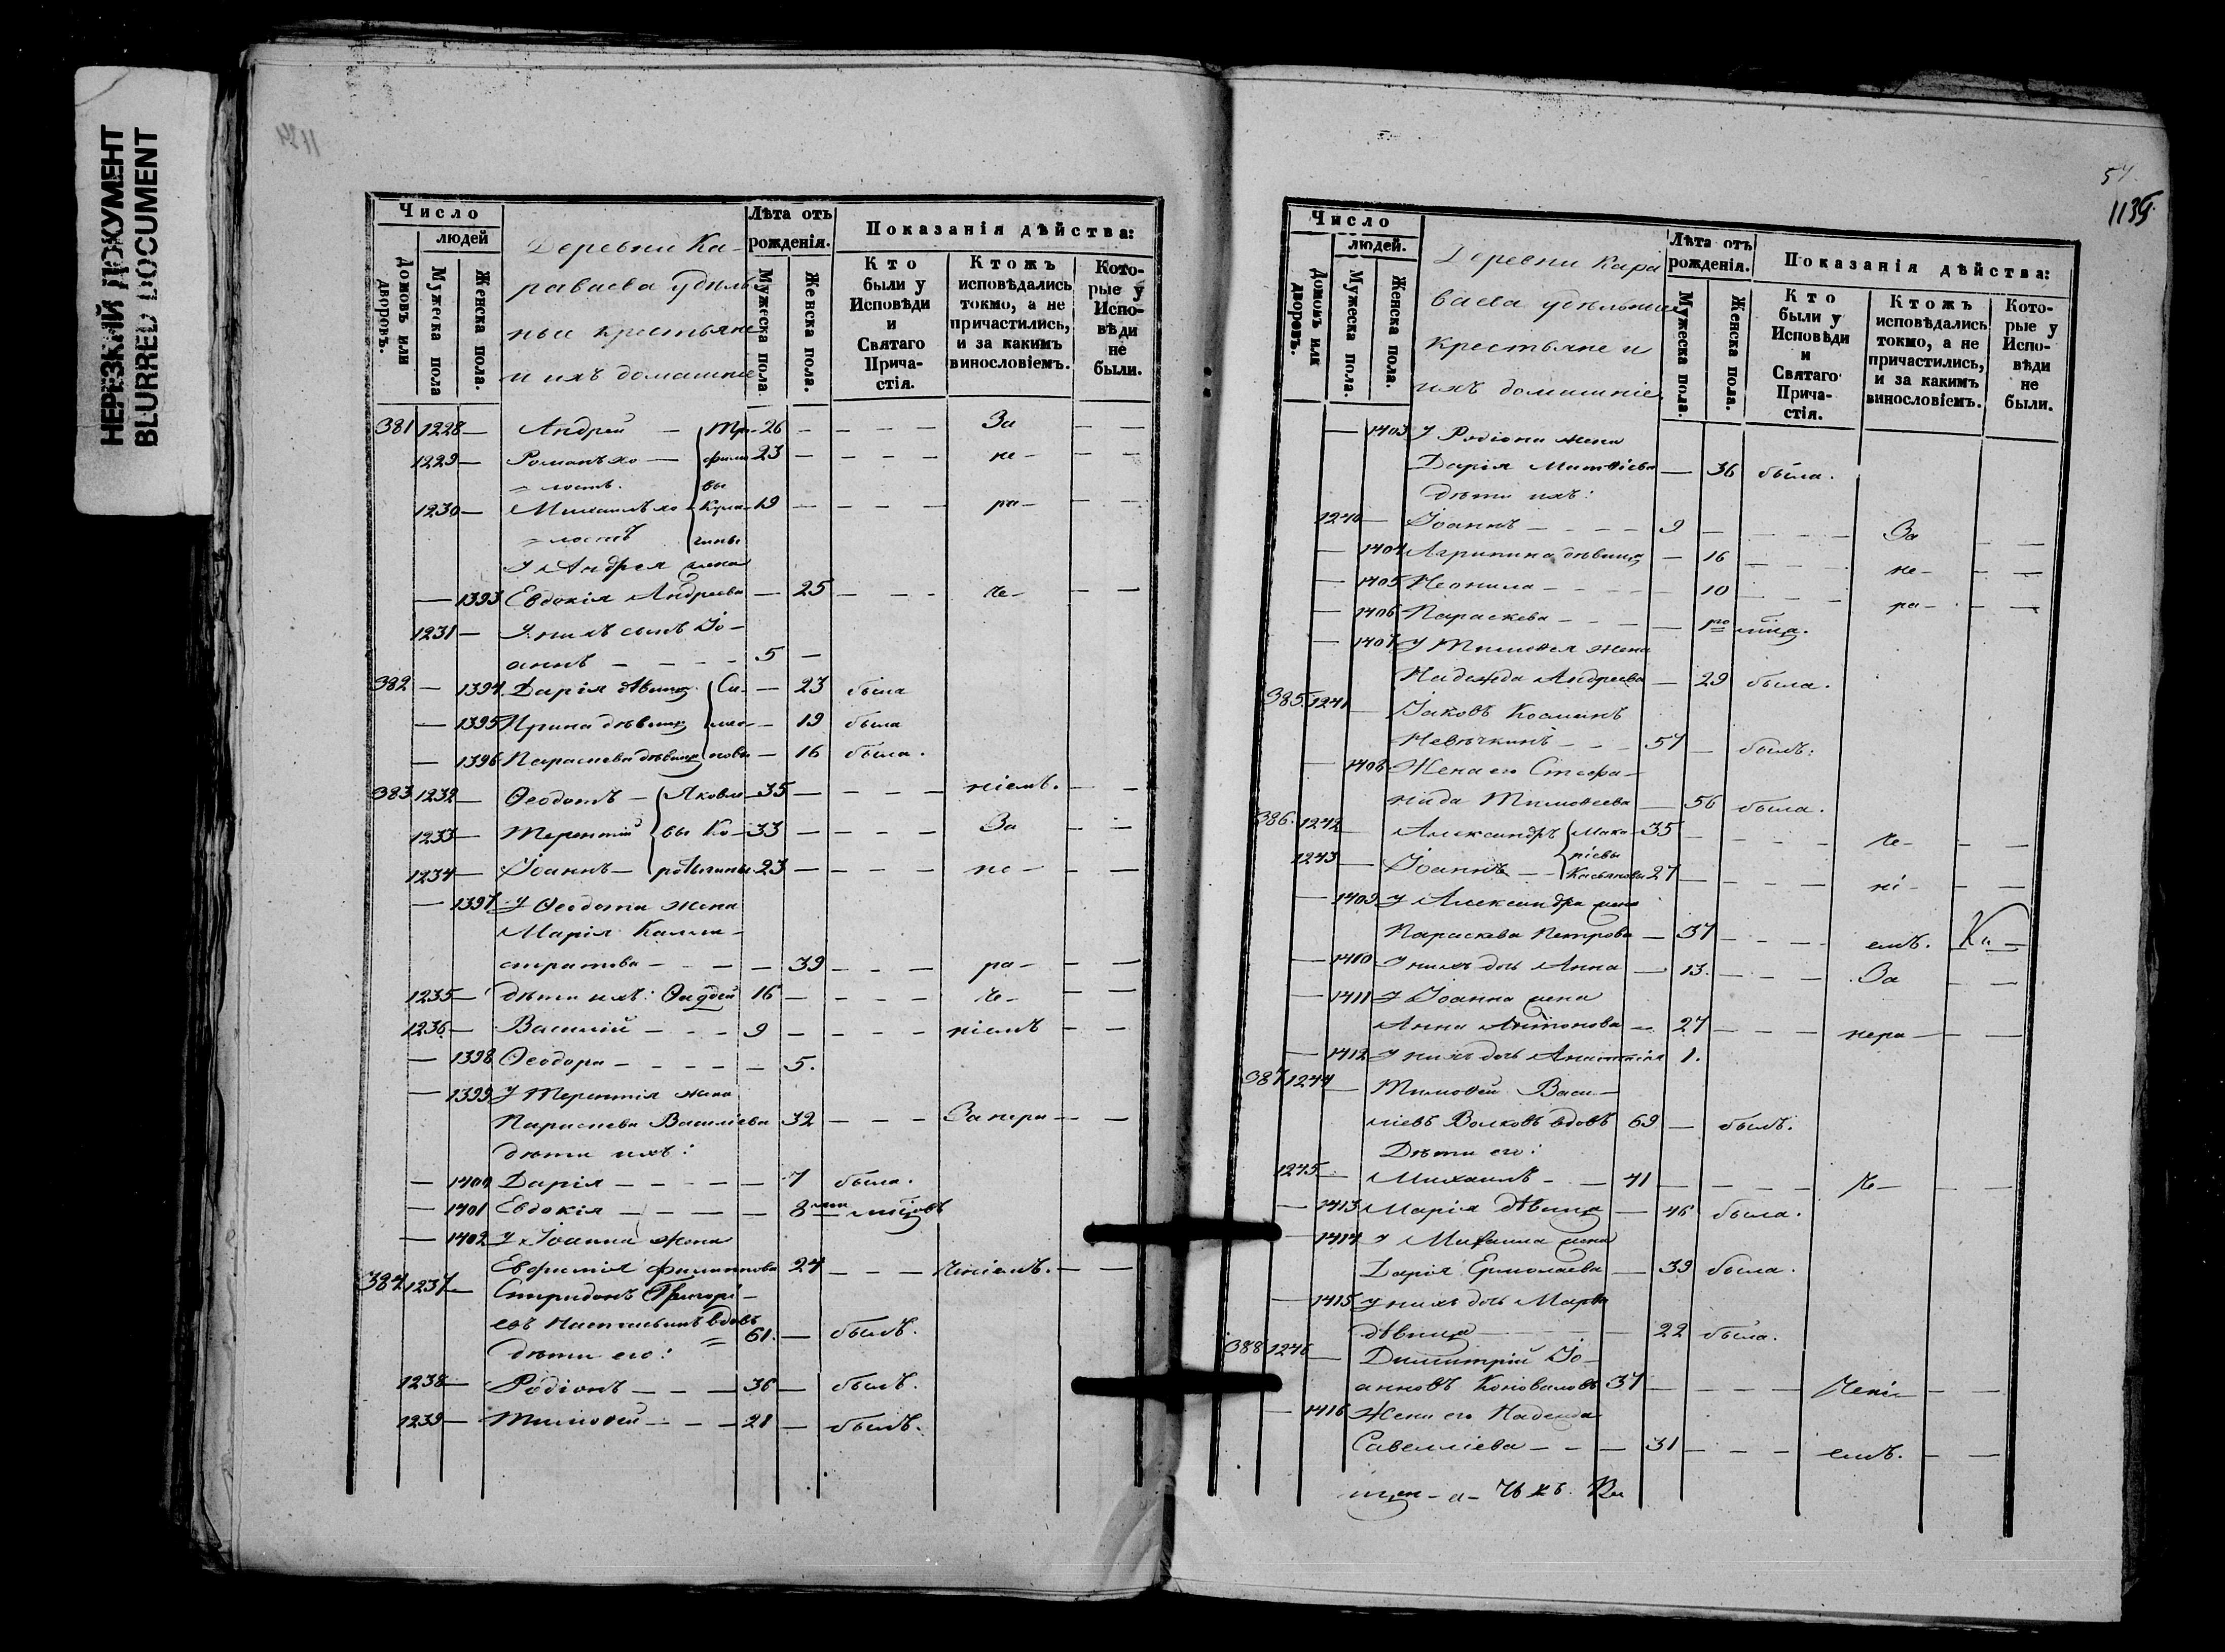 НЕРЕЗКИЙ ДОКУМЕНТ
BLURRED DOCUMENT
1134
Число
людей
Домовъ или дворовъ.
Мужеска пола
Женска пола.
Деревни Ка-
раваева удѣль-
ные крестьяне
и ихъ домашніе
Лѣта отъ рожденія.
Мужеска пола
Женска пола.
Показанія дѣйства:
Кто были у Исповѣди и Святаго Прича-стія.
Ктожъ исповѣдались токмо, а не причастились, и за какимъ винословіемъ.
Кото-рые у Испо-вѣди не были.
381 1228 — Андрей — Тро- 26 — — — — За — —
1229 — Романъ хо- фимо- 23 — — — — не- — —
= лостъ. вы
1230 — Михаилъ хо- 19 — — — — ра- — —
= лостъ
У Андрея жена
— 1393 Евдокія Андреева — 25 — — — че- — —
1231 — У нихъ сынъ Іо-
аннъ — — — — 5 —
382 — 1394 Дарія дѣвица Си- — 23 была
— 1395 Ирина дѣвица мео- — 19 была
— 1396 Параскева дѣвица новы — 16 была.
383 1232 — Ѳеодотъ — Яковле- 35 — — — — ніемъ. — —
1233 — Терентій вы Ко- 33 — — — — За — —
1234 — Іоаннъ — 23 — — — — не — — —
— 1397 У Ѳеодота жена
Марія Калли-
стратова — — — — 39 — — — ра- — —
1235 — дѣти ихъ: Ѳаддей 16 — — — — че- — —
1236 — Василій — — — 9 — — — — ніемъ — —
— 1398 Ѳеодора — — — — — 5.
— 1399 У Терентія жена
Параскева Василіева 32 — — — За нера — —
дѣти ихъ:
— 1400 Дарія — — — — — 7 была.
— 1401 Евдокія — — — — 8 ми мѣсяцовъ
— 1402 У Іоанна жена
Евфимія Филиппова 24 — — — ченіемъ. — —
384 1237 — Спиридонъ Григорі-
евъ вдовъ 61. — былъ.
дѣти его:
1238 — Родіонъ — — — 36 — былъ.
1239 — Тимоѳей — — — 28 — былъ.
57
1135.
Число
людей.
Домовъ или дворовъ.
Мужеска пола.
Женска пола.
Деревни Кара
ваева удѣльные
крестьяне и
ихъ домашніе
Лѣта отъ рожденія.
Мужеска пола.
Женска пола.
Показанія дѣйства:
Кто были у Исповѣди и Святаго Прича-стія.
Ктожъ исповѣдались токмо, а не причастились, и за какимъ винословіемъ.
Кото-рые у Испо-вѣди не были.
— 1403 У Родіона жена
Дарія Матвѣева — 36 была.
дѣти ихъ:
1240 — Іоаннъ — — — — 9 — — — — За — —
— 1404 Агрипина дѣвица — 16 — — — не- — —
— 1405 Неонила — — — — — 10 — — — ра- — —
— 1406 Параскева — — — — 1го мѣсяца.
— 1407 У Тимоѳея жена
Надежда Андреева — 29 была.
385. 1241 — Іаковъ Косминъ
57 — былъ.
— 1408 Жена его Стефа-
нида Тимоѳеева — 56 была.
386. 1242 — Александръ Мака- 35 — — — — че- — —
1243 — Іоаннъ — — ріевы Касьяновы 27 — — — — ні- — —
— 1409 У Александра жена
Параскева Петрова — 37 — — — емъ. —
— 1410 У нихъ дочь Анна — 13. — — — За — —
— 1411 У Іоанна жена
Анна Антонова — 27 — — — нера — — —
— 1412 У нихъ дочь Анастасія 1.
387 1244 — Тимоѳей Васи-
ліевъ Волковъ вдовъ 69 — былъ.
Дѣти его:
1245 — Михаилъ — — 41 — — — — че- — —
— 1413 Марія дѣвица — 46 была.
— 1414 У Михаила жена
Дарія Ермолаева — 39 была.
— 1415 У нихъ дочь Марѳа
дѣвица — — — — — 22 была.
388 1246 — Димитрій Іо-
анновъ Коноваловъ 37 — — — — чені- — —
— 1416 Жена его Надежда
Савеліева — — — 31 — — — емъ. — —